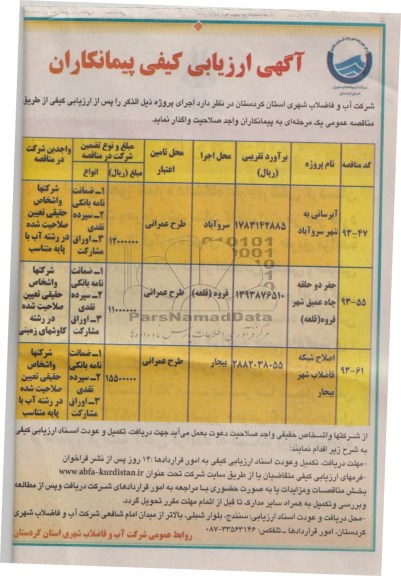 آگهی ارزیابی کیفی پیمانکاران
شرکت آب و فاضلاب شهری استان کردستان در نظر دارد اجرای پروژه ذیل الذکر را پس از ارزیابی کیفی از طریق
مناقصه عمومی یک مرحله‌ای به پیمانکاران واجد صلاحیت واگذار نماید.
کد مناقصه نام پروژه برآورد تقریبی (ریال) محل اجرا محل تامین اعتبار مبلغ و نوع تضمین شرکت در مناقصه واجدین شرکت در مناقصه
مبلغ (ریال) انواع
۹۳-۴۷ آبرسانی به شهر سروآباد ۱۷۸۳۱۴۲۸۸۵ سروآباد طرح عمرانی ۱۲۰۰۰۰۰۰ ۱ـ ضمانت نامه بانکی ۲ـ سپرده نقدی ۳ـ اوراق مشارکت شرکتها واشخاص حقیقی تعیین صلاحیت شده در رشته آب با پایه متناسب
۹۳-۵۵ حفر دو حلقه چاه عمیق شهر قروه(قلعه) ۱۳۹۳۸۷۶۵۱۰ قروه (قلعه) طرح عمرانی ۱۱۰۰۰۰۰۰ ۱ـ ضمانت نامه بانکی ۲ـ سپرده نقدی ۳ـ اوراق مشارکت شرکتها واشخاص حقیقی تعیین صلاحیت شده در رشته کاوشهای زمینی
۹۳-۶۱ اصلاح شبکه فاضلاب شهر بیجار ۲۸۸۲۰۳۸۰۵۵ بیجار طرح عمرانی ۱۵۵۰۰۰۰۰ ۱ـ ضمانت نامه بانکی ۲ـ سپرده نقدی ۳ـ اوراق مشارکت شرکتها واشخاص حقیقی تعیین صلاحیت شده در رشته آب با پایه متناسب
ParsNamadData
از شرکتها واشخاص حقیقی واجد صلاحیت دعوت بعمل می‌آید جهت دریافت، تکمیل و عودت اسناد ارزیابی کیفی
به شرح زیر اقدام نمایند:
-مهلت دریافت، تکمیل وعودت اسناد ارزیابی کیفی به امور قراردادها :۱۴ روز پس از نشر فراخوان
-فرمهای ارزیابی کیفی متقاضیان یا از طریق سایت شرکت تحت عنوان www.abfa-kurdistan.ir
بخش مناقصات ومزایدات یا به صورت حضوری با مراجعه به امور قراردادهای شرکت دریافت وپس از مطالعه
وبررسی وتکمیل به همراه سایر مدارک تا قبل از اتمام مهلت مقرر تحویل گردد.
-محل دریافت و عودت اسناد ارزیابی: سنندج، بلوار شبلی، بالاتر از میدان امام شافعی شرکت آب و فاضلاب شهری
کردستان، امور قراردادها ـ تلفکس: ۳۳۵۶۳۱۴۶-۰۸۷
روابط عمومی شرکت آب و فاضلاب شهری استان کردستان